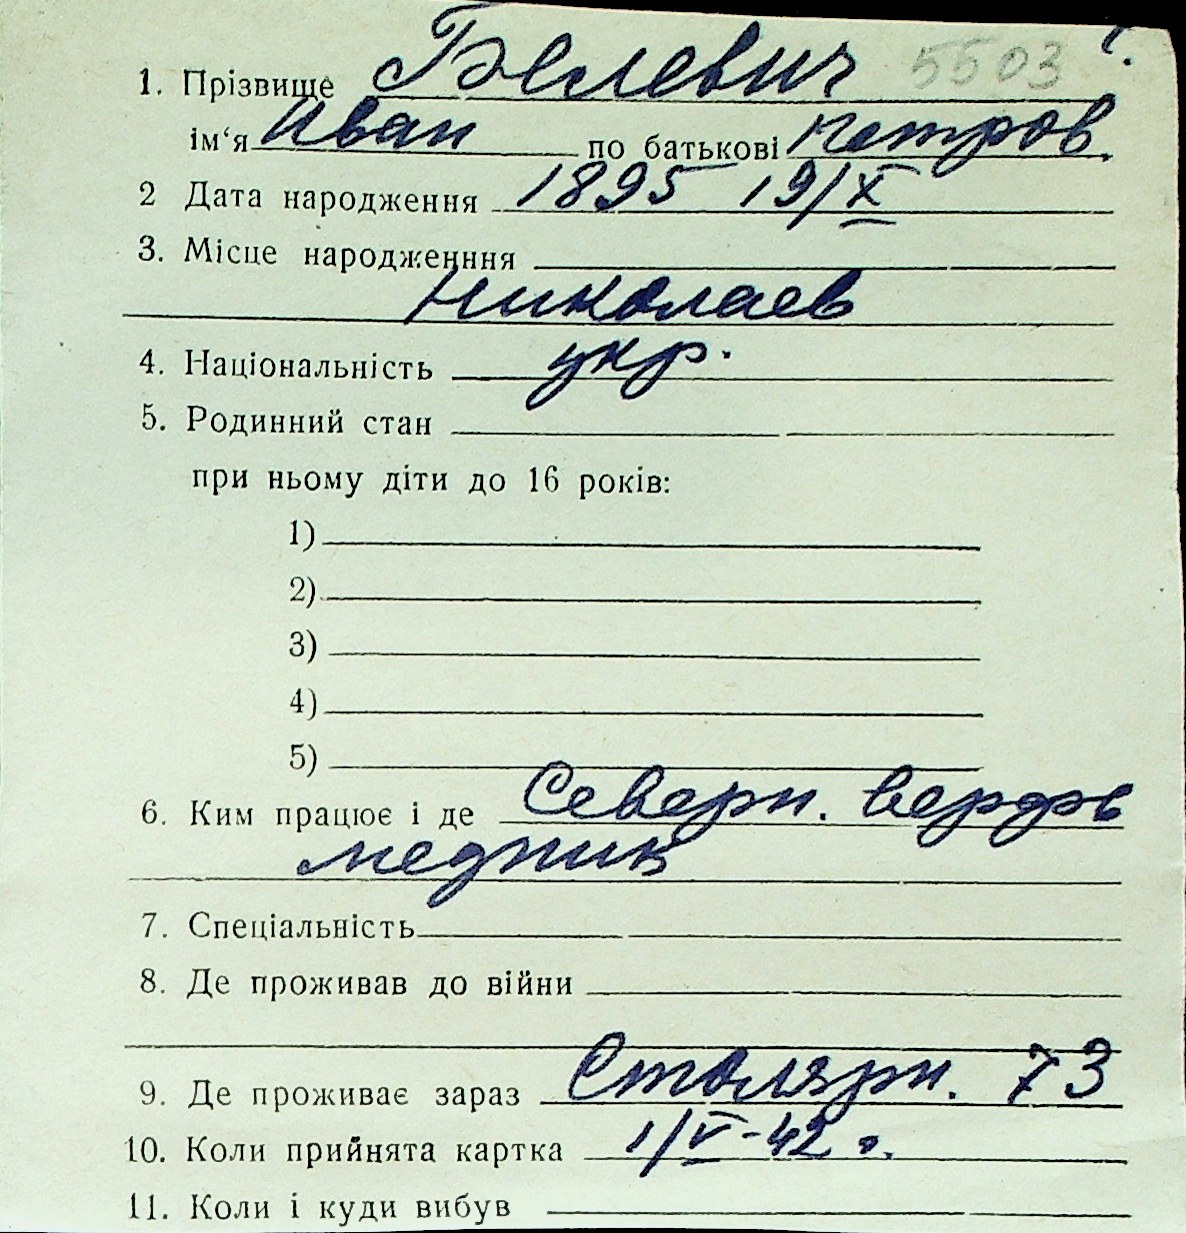 1. Прізвище Белевич 5503
ім‘я Иван по батькові Петров.
2 Дата народження 1895 19/X
3. Місце народженння
Николаев
4. Національність укр.
5. Родинний стан
при ньому діти до 16 років:
1)
2)
3)
4)
5)
6. Ким працює і де Северн. верфь
медник
7. Спеціальність
8. Де проживав до війни
9. Де проживає зараз Столярн. 73
10. Коли прийнята картка 1/V-42 г.
11. Коли і куди вибув